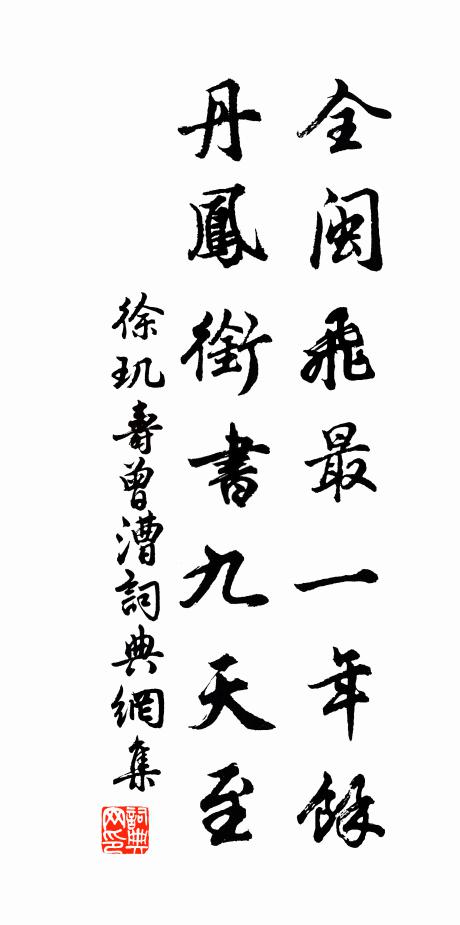 全閩飛最一年餘
丹鳳銜書九天至
徐玑壽曾漕詞典網集
詞典网印